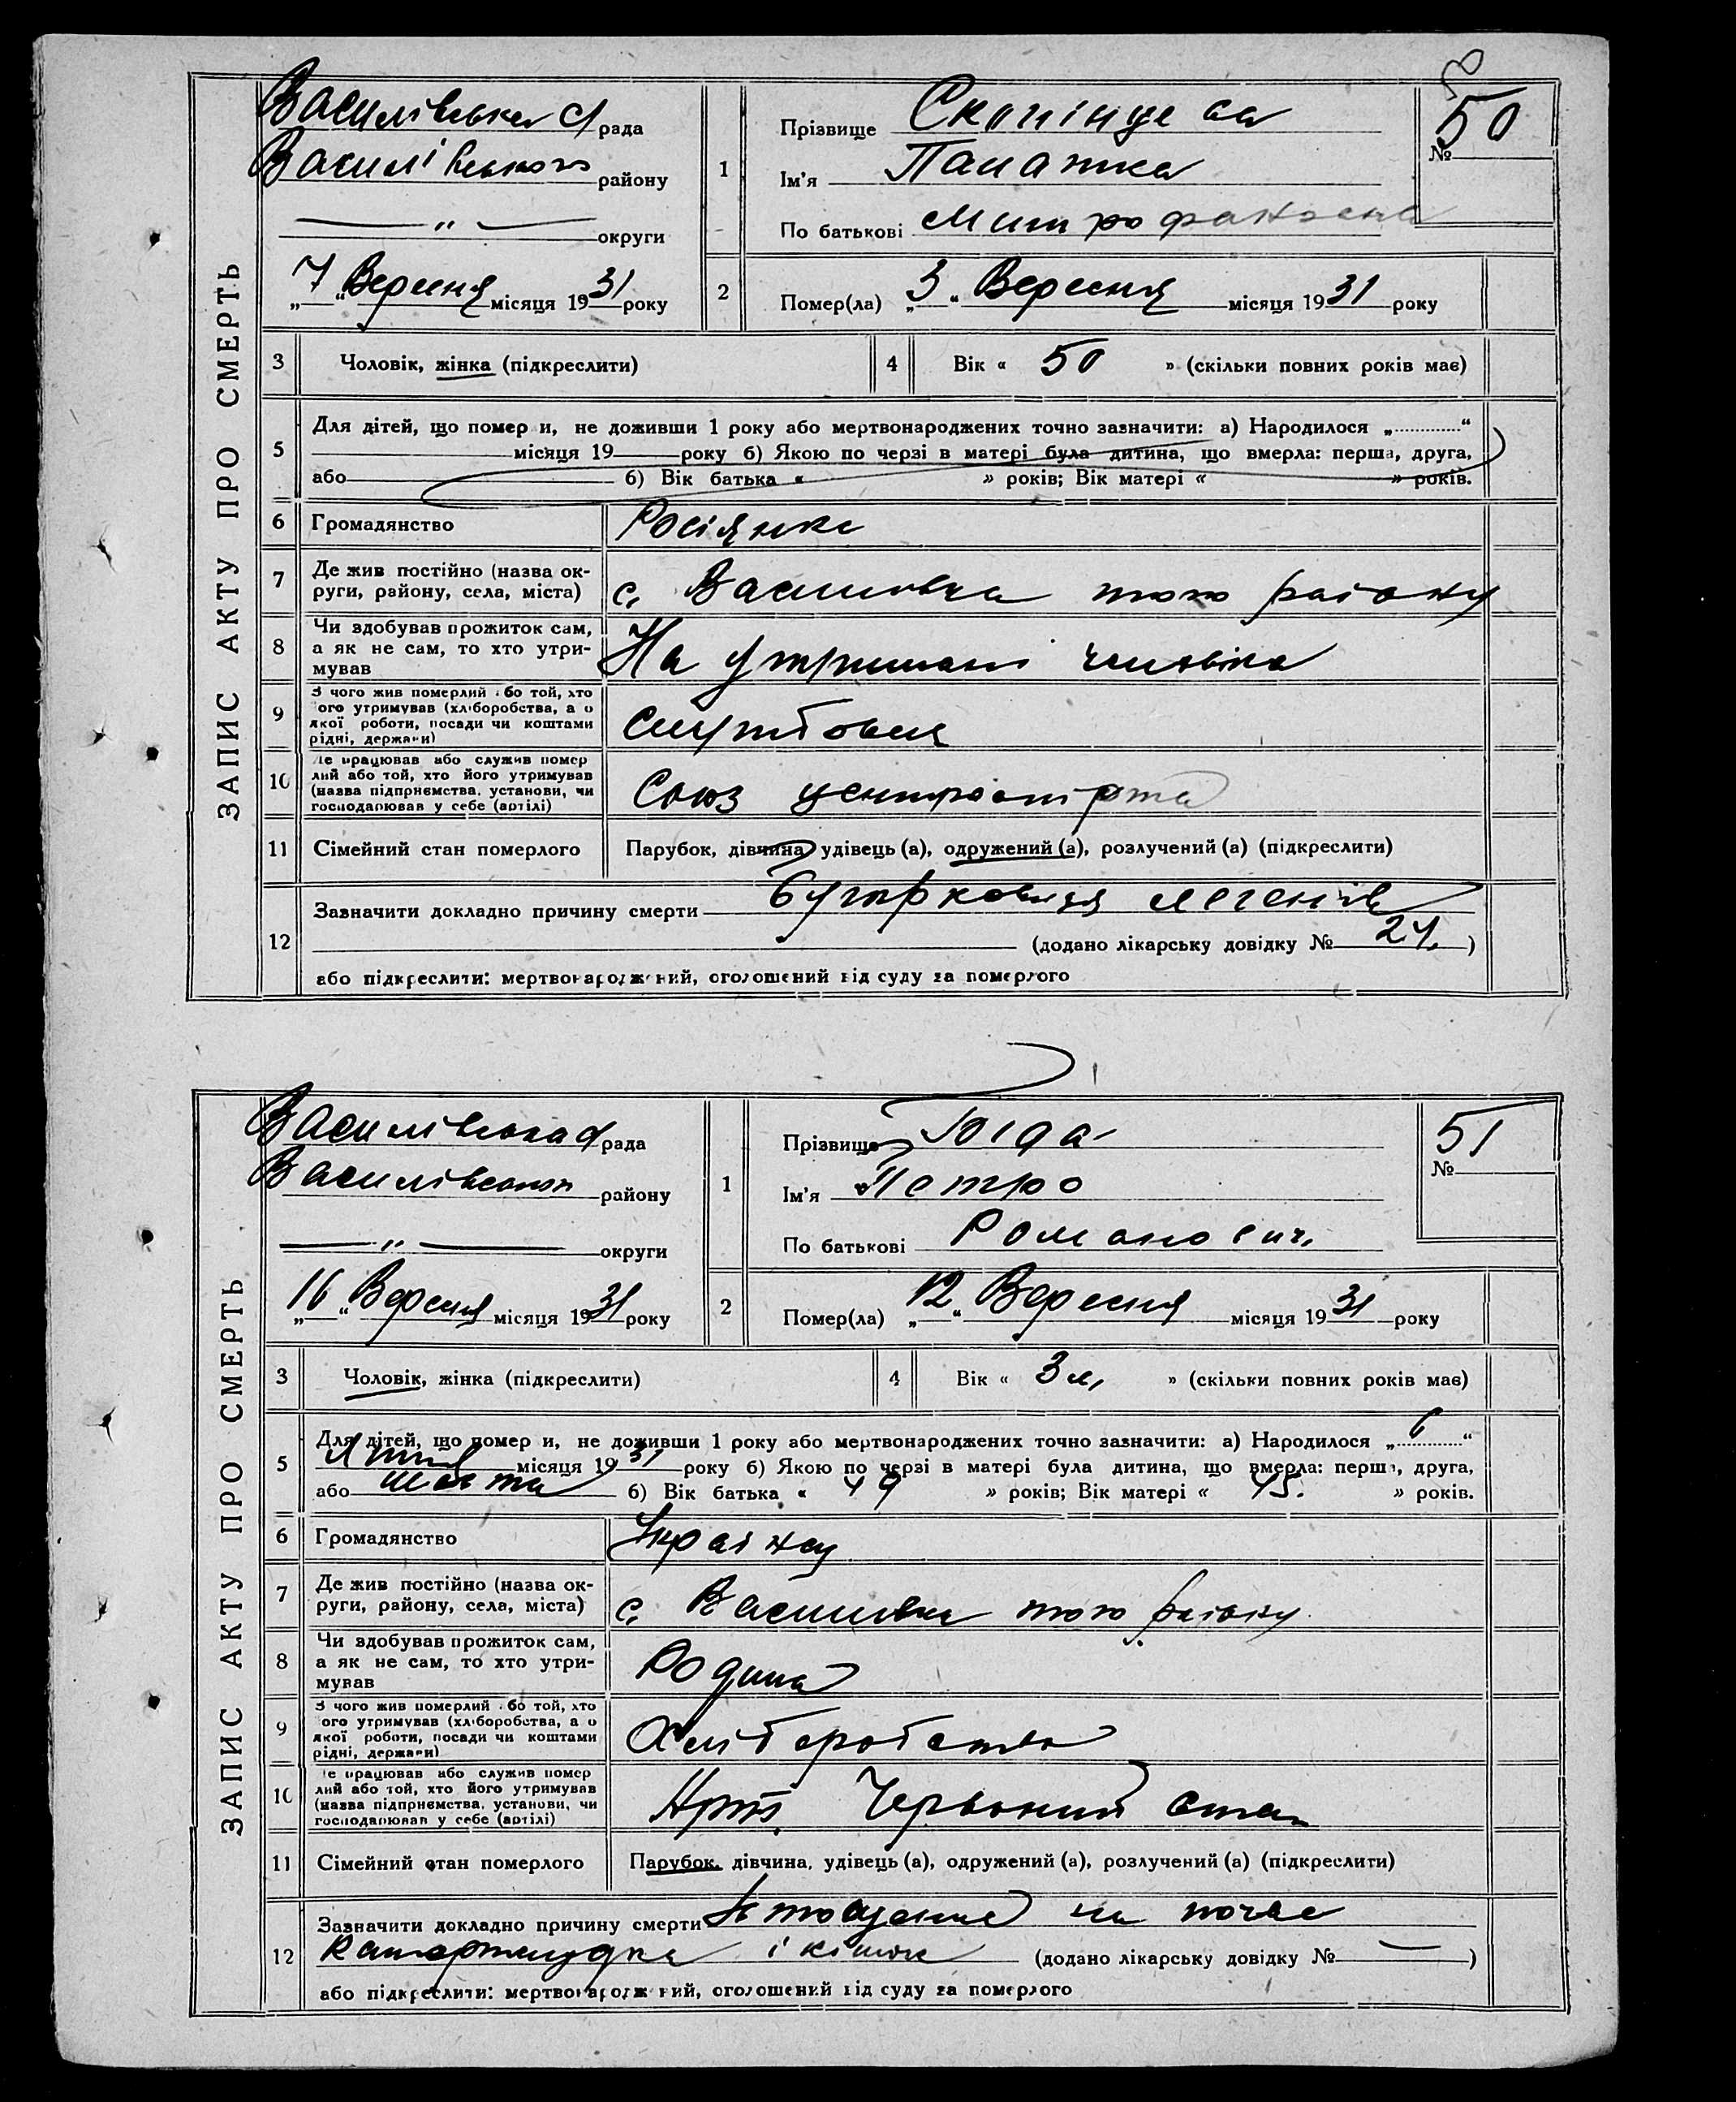 ЗАПИС АКТУ ПРО СМЕРТЬ
Василівська с/рада
Василівського району
— " — округи
„7“ Вересня місяця 1931 року
1
Прізвище Скопінцева
Ім'я
По батькові Митрофановна
№ 50
2
Помер(ла) „3“ Вересня місяця 1931 року
3 Чоловік, жінка (підкреслити)
4 Вік « 50 » (скільки повних років має)
5 Для дітей, що помер и, не доживши 1 року або мертвонароджених точно зазначити: а) Народилося „ “
місяця 19 року б) Якою по черзі в матері була дитина, що вмерла: перша, друга,
або б) Вік батька « » років; Вік матері « » років.
6 Громадянство Росіянка
7 Де жив постійно (назва ок-
руги, району, села, міста) с. Василівка того району
8 Чи здобував прожиток сам,
а як не сам, то хто утри-
мував На утриманні чоловіка
9 З чого жив померлий або той, хто
його утримував (хліборобства, а о
якої роботи, посади чи коштами
рідні, держави) Службовця
10 Де працював або служив помер
лий або той, хто його утримував
(назва підприємства, установи, чи
господарював у себе (артілі) Союз центроспірта
11 Сімейний стан померлого Парубок, дівчина, удівець (а), одружений (а), розлучений (а) (підкреслити)
12 Зазначити докладно причину смерти легенів
(додано лікарську довідку № 24. )
або підкреслити: мертвонароджений, оголошений від суду за померлого
ЗАПИС АКТУ ПРО СМЕРТЬ
Василівська с/рада
Василівського району
— " — округи
„16“ Вересня місяця 1931 року
1
Прізвище
Ім'я Петро
По батькові Романович
№ 51
2
Помер(ла) „12“ Вересня місяця 1931 року
3 Чоловік, жінка (підкреслити)
4 Вік « 3 м. » (скільки повних років має)
5 Для дітей, що помер и, не доживши 1 року або мертвонароджених точно зазначити: а) Народилося „6“
місяця 1931 року б) Якою по черзі в матері була дитина, що вмерла: перша, друга,
або шоста б) Вік батька « 49 » років; Вік матері « 45. » років.
6 Громадянство
7 Де жив постійно (назва ок-
руги, району, села, міста) с. Василівка того району
8 Чи здобував прожиток сам,
а як не сам, то хто утри-
мував Родина
9 З чого жив померлий або той, хто
його утримував (хліборобства, а о
якої роботи, посади чи коштами
рідні, держави) Хліборобство
10 Де працював або служив помер
лий або той, хто його утримував
(назва підприємства, установи, чи
господарював у себе (артілі) Арт. Червоний стан
11 Сімейний стан померлого Парубок, дівчина, удівець (а), одружений (а), розлучений (а) (підкреслити)
12 Зазначити докладно причину смерти на почве
і кішок (додано лікарську довідку № — )
або підкреслити: мертвонароджений, оголошений від суду за померлого